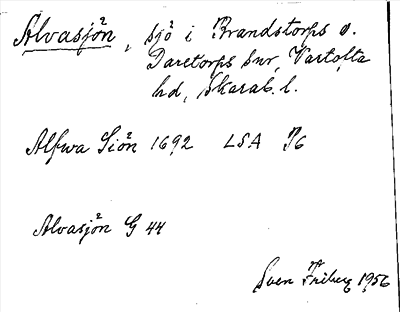 Alvasjön, sjö i Brandstorps o.
Daretorps snr, Vartofta
hd, Skarab. l.
Alfwa Siön 1692 LSA P6
Alvasjön G 44
Sven Friberg 1956